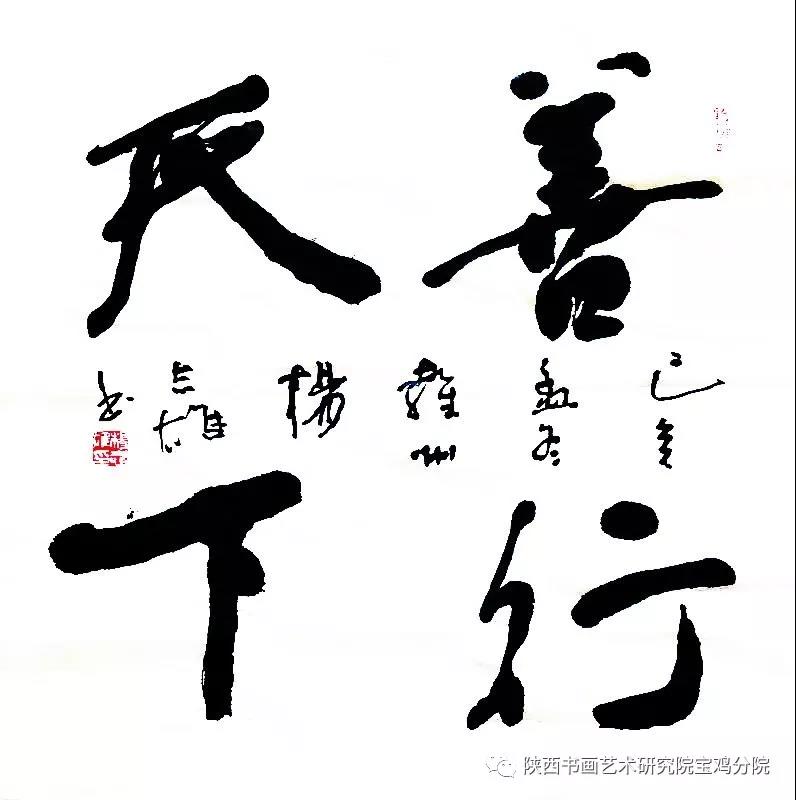 善行
天下
己亥
孟冬
雍州
楊
書
陕西书画艺术研究院宝鸡分院